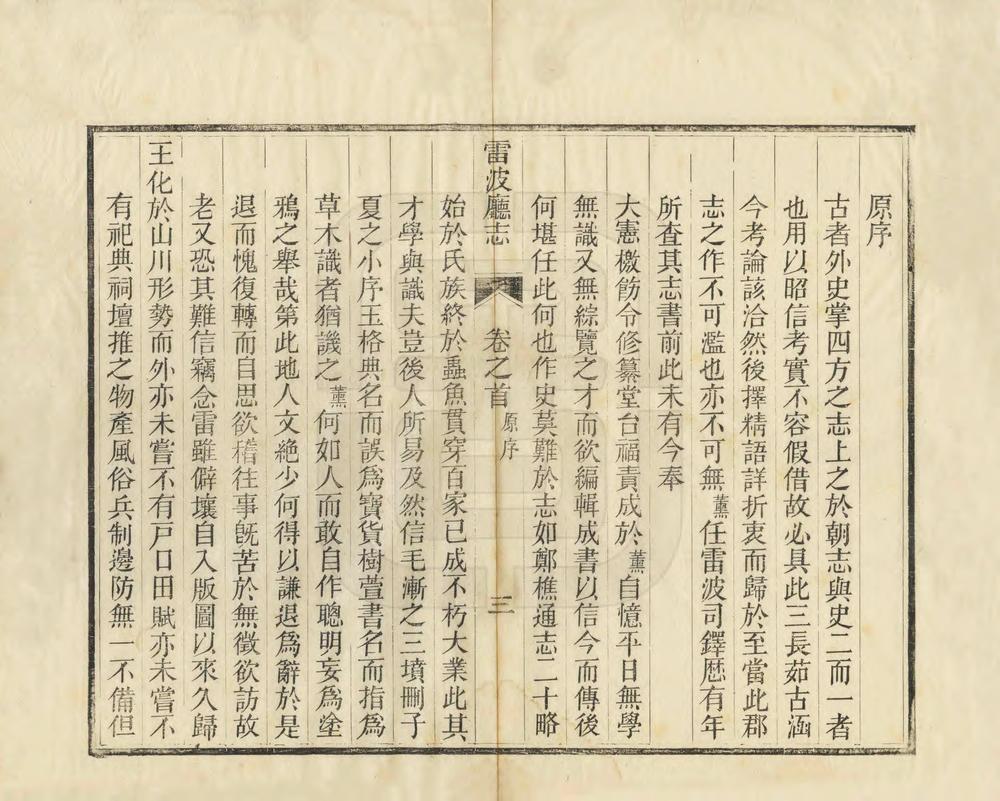 原序
古者外史掌四方之志上之於朝志與史二而一者
也用以昭信考實不容假借故必具此三長茹古涵
今考論該洽然後擇精語詳折衷而歸於至當此郡
志之作不可濫也亦不可無薰任雷波司鐸歷有年
所查其志書前此未有今奉
大憲檄飭令修纂堂台福責成於薰自憶平日無學
無識又無綜覽之才而欲編輯成書以信今而傳後
何堪任此何也作史莫難於志如鄭樵通志二十略
雷波廳志 卷之首 原序 三
始於氏族終於蟲魚貫穿百家已成不朽大業此其
才學與識夫豈後人所易及然信毛漸之三墳刪子
夏之小序玉格典名而誤爲寶貨樹萱書名而指爲
草木識者猶譏之薰何如人而敢自作聰明妄爲塗
鴉之舉哉第此地人文絶少何得以謙退爲辭於是
退而愧復轉而自思欲稽往事旣苦於無徵欲訪故
老又恐其難信竊念雷雖僻壤自入版圖以來久歸
王化於山川形勢而外亦未嘗不有戸口田賦亦未嘗不
有祀典祠壇推之物產風俗兵制邊防無一不備但